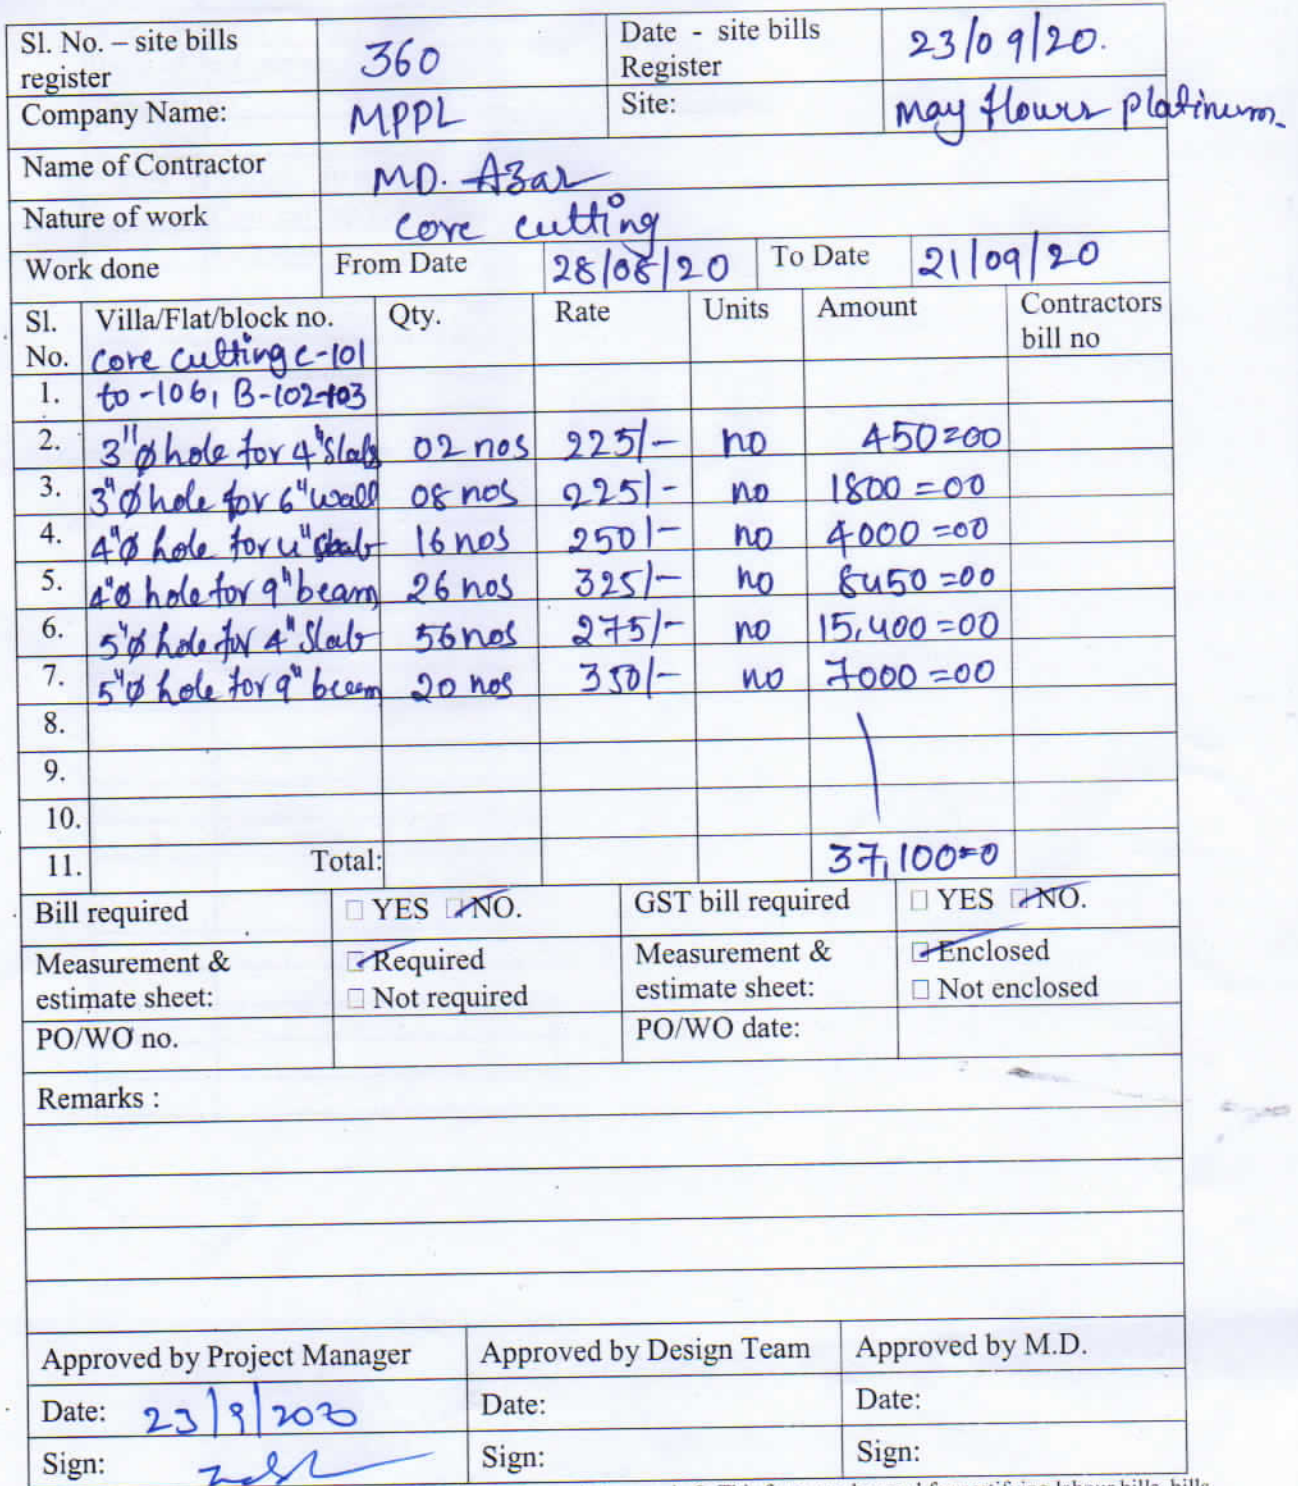 Sl. No. – site bills register 360 Date - site bills Register 23/09/20.
Company Name: MPPL Site: May flours platinum.
Name of Contractor MD. Azar
Nature of work core cutting
Work done From Date 28/08/20 To Date 21/09/20
Sl. No. Villa/Flat/block no. Qty. Rate Units Amount Contractors bill no
core cutting c-101
1. to -106, B-102-103
2. 3"ø hole for 4" Slab 02 nos 225/- no 450=00
3. 3"ø hole for 6" wall 08 nos 225/- no 1800=00
4. 4"ø hole for 4" slab 16 nos 250/- no 4000=00
5. 4"ø hole for 9" beam 26 nos 325/- no 8450=00
6. 5"ø hole for 4" Slab 56 nos 275/- no 15,400=00
7. 5"ø hole for 9" beem 20 nos 350/- no 7000=00
8.
9.
10.
11. Total: 37,100=0
Bill required YES NO. GST bill required YES NO.
Measurement & estimate sheet: Required Not required Measurement & estimate sheet: Enclosed Not enclosed
PO/WO no. PO/WO date:
Remarks :
Approved by Project Manager Approved by Design Team Approved by M.D.
Date: 23/9/2020 Date: Date:
Sign: Sign: Sign: